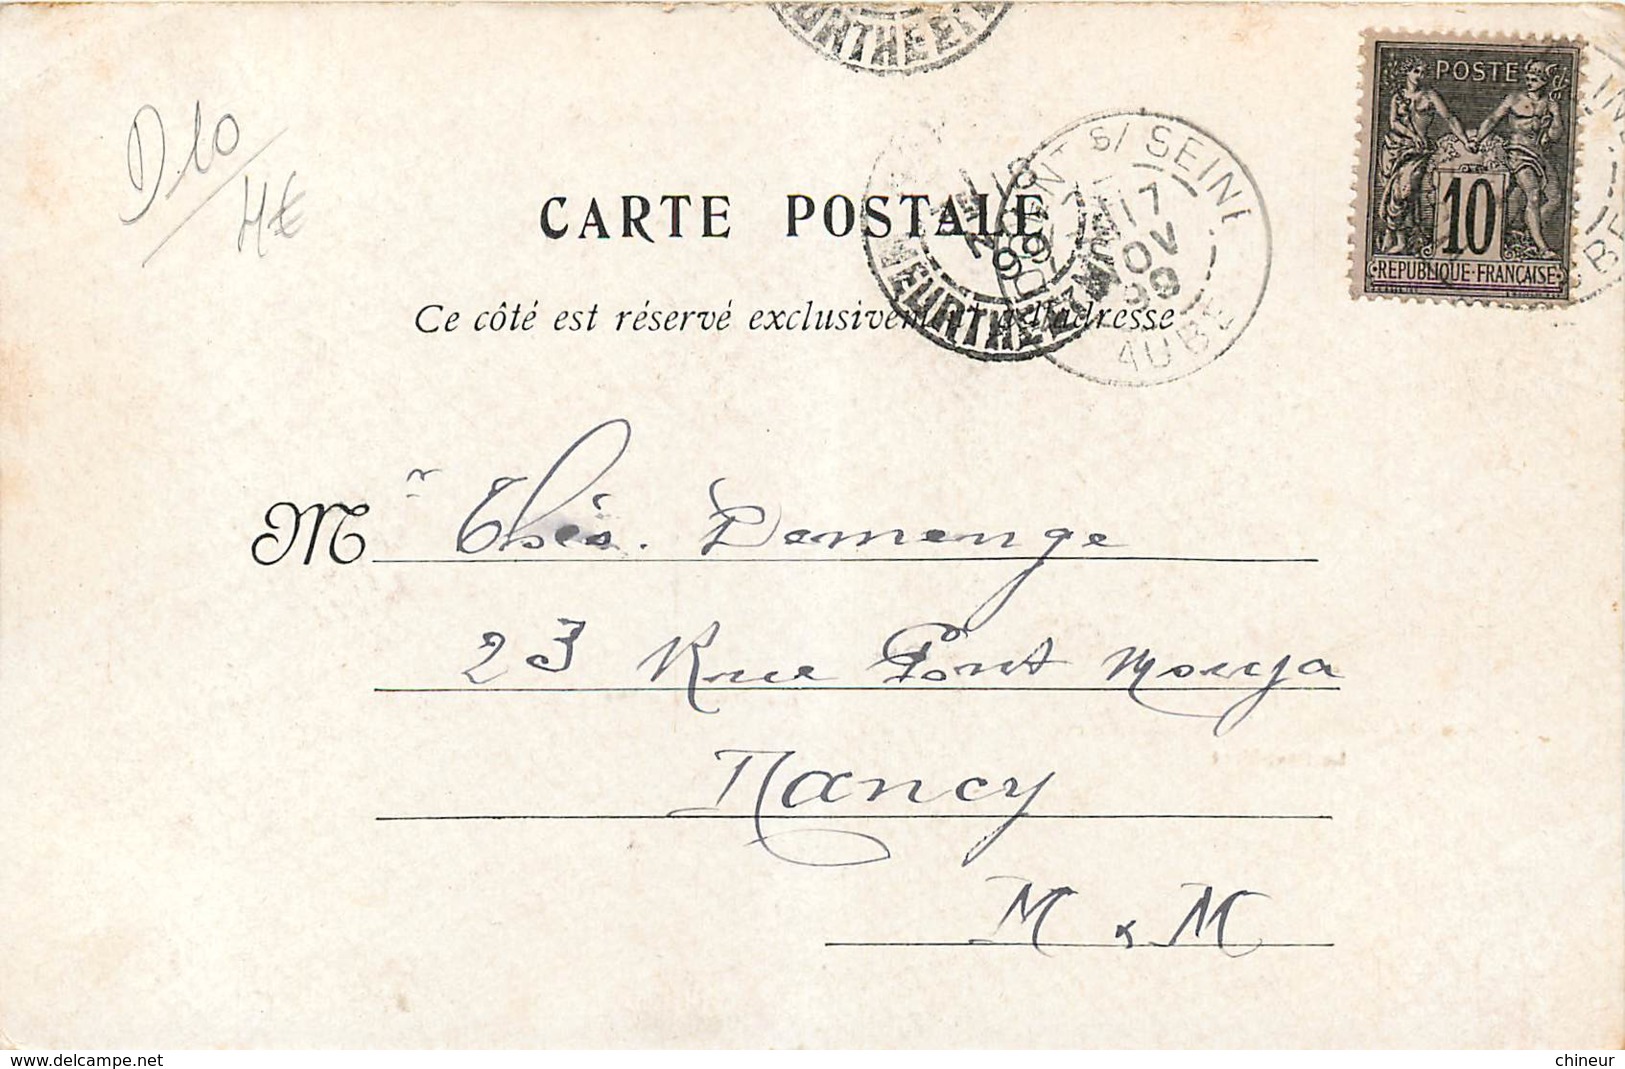 URTHE ET M
POSTE
10
REPUBLIQUE FRANÇAISE
D10
4€
S/ SEINE
17
NOV
99
AUBE
MEURTHE ET M
99
CARTE POSTALE
Ce côté est réservé exclusivement à l'adresse
Mr Demenge
23 Rue Pont Mouja
Nancy
M & M
www.delcampe.net
chineur